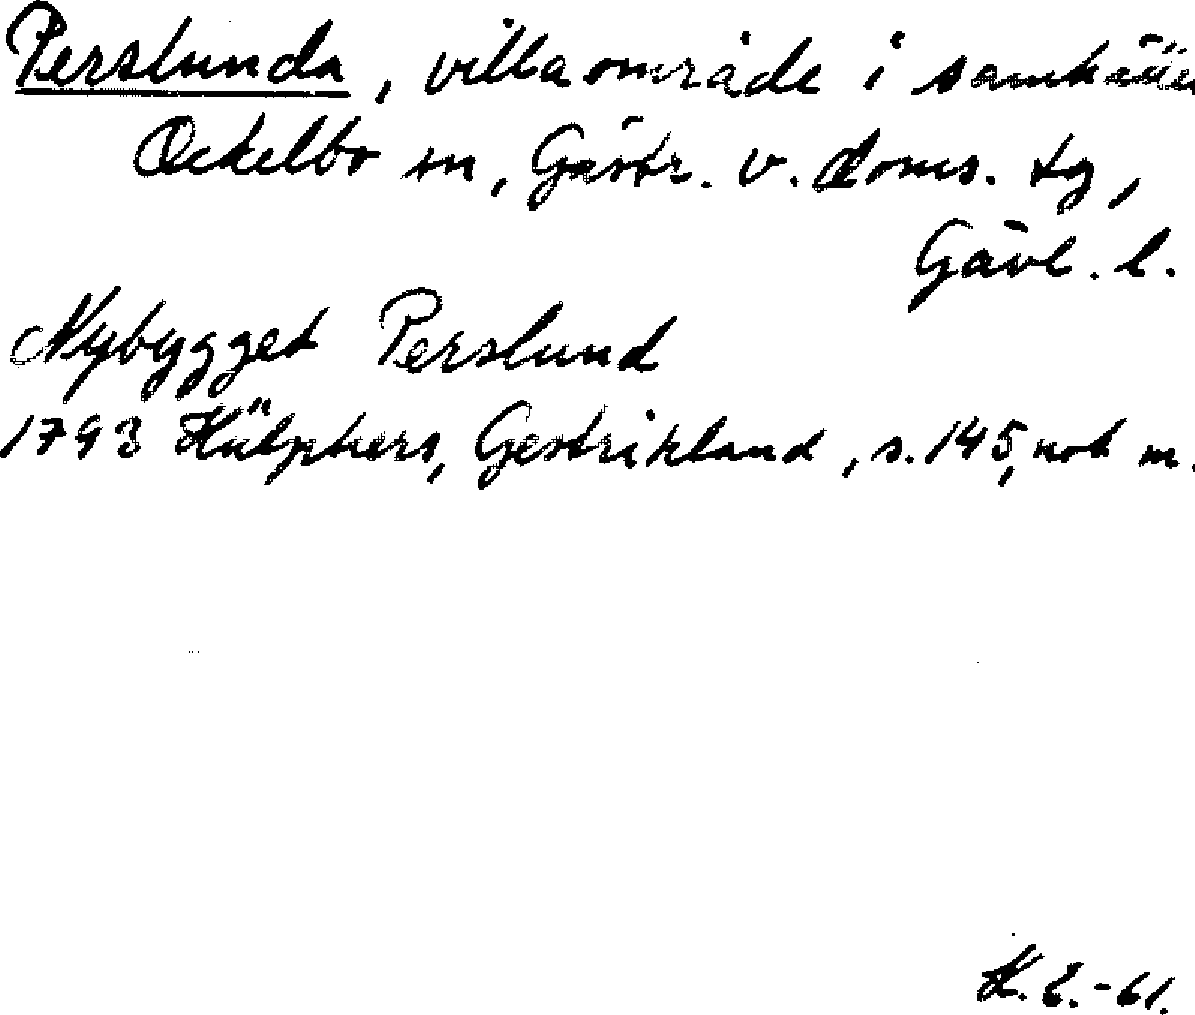 Perslunda, villaområde i samhälle
Ockelbo sn, Gästr. v. doms. tg,
Gävl. l.
Nybygget Perslund
1793 Hülphers, Gestrikland, s. 145, not m.
K. E.-61.